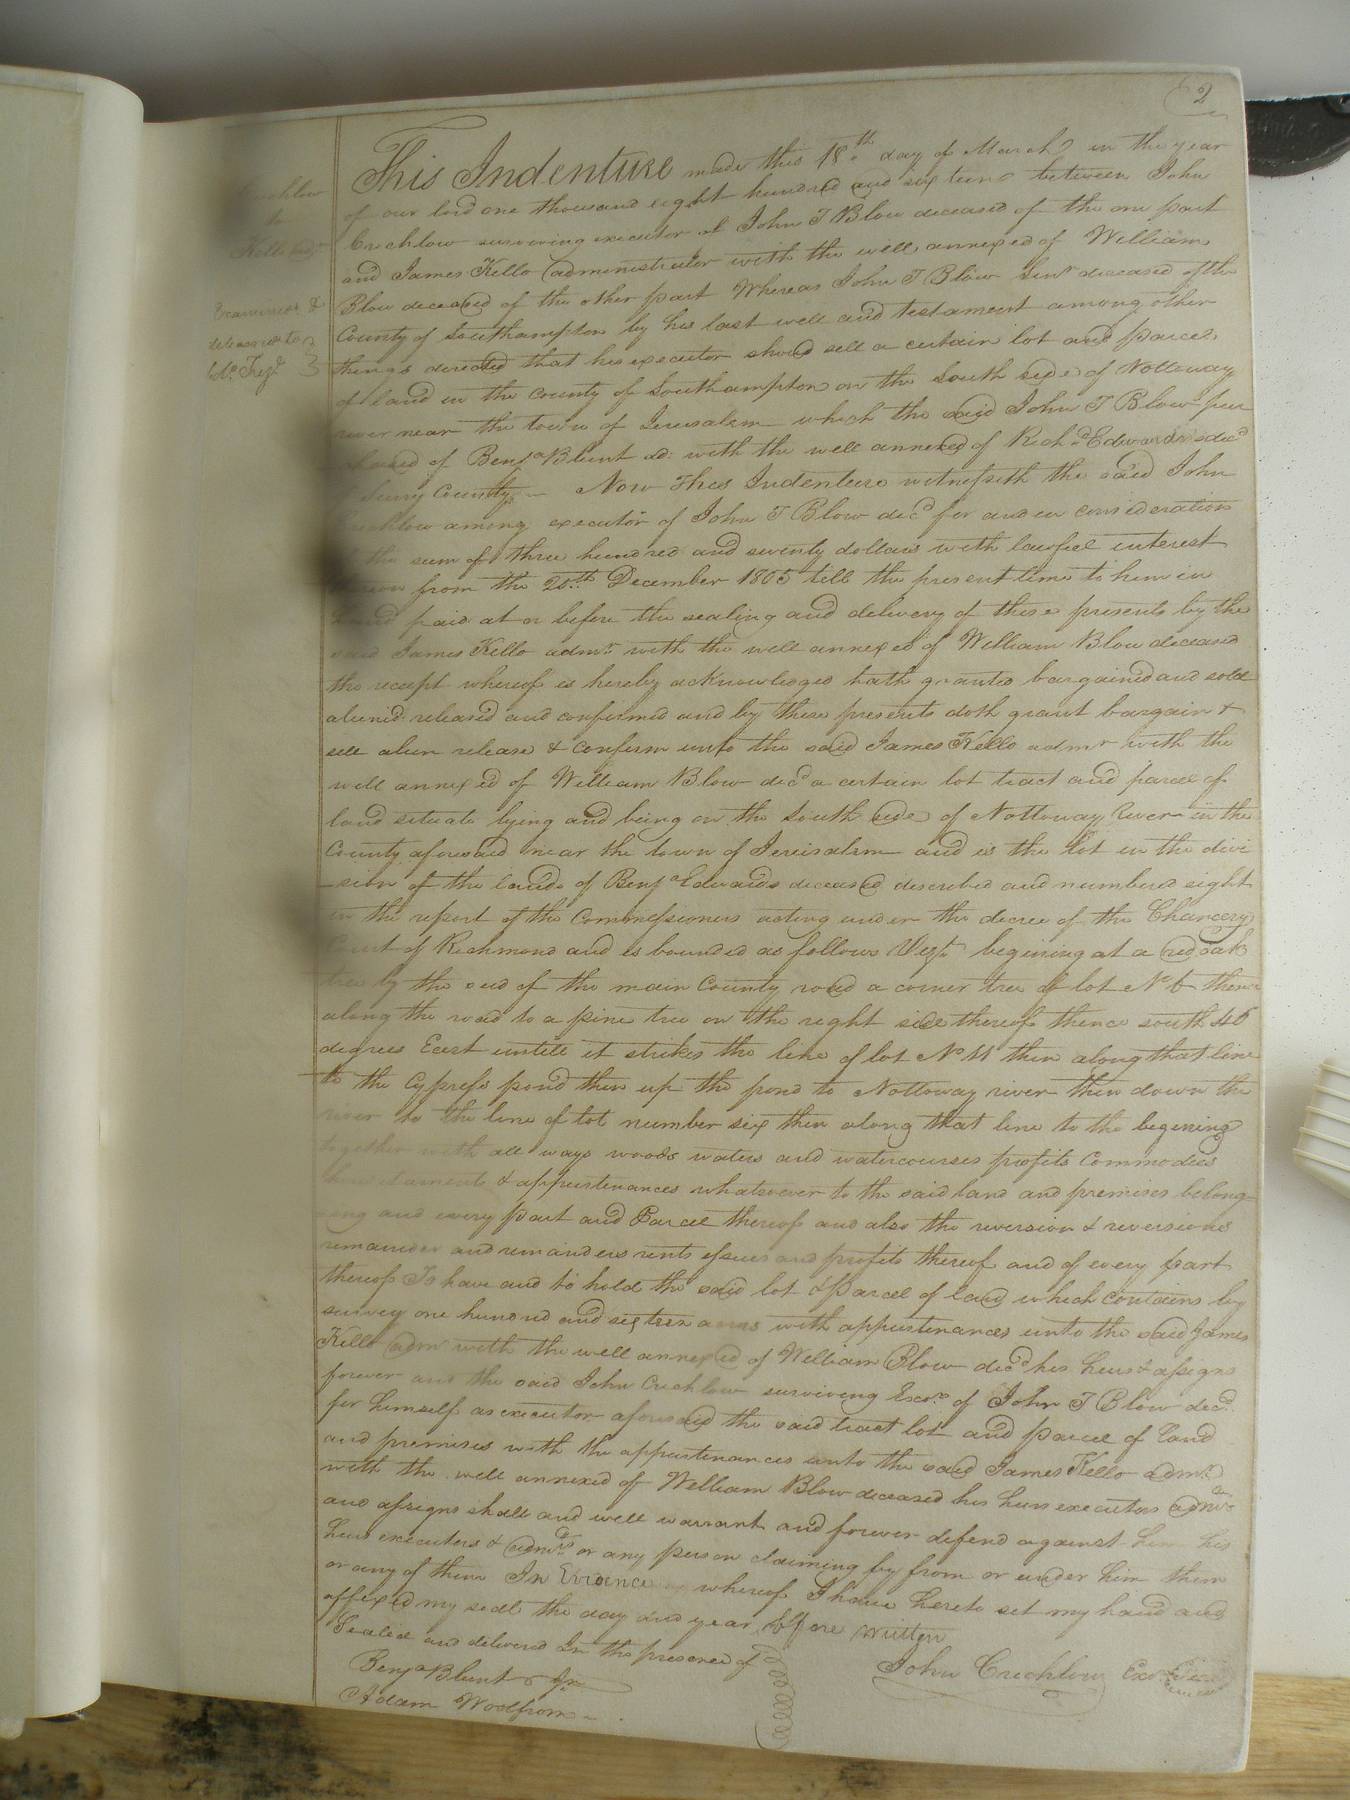 2
Crichlow
to
Kello
Examined &
delivered to
This Indenture made this 18th day of March in the year
of our lord one thousand eight hundred and sixteen between John
Crichlow surviving executor of John T Blow deceased of the one part
and James Kello administrator with the will annexed of William
Blow deceased of the other part Whereas John T Blow Senr deceased of the
County of Southampton by his last will and testament among other
things directed that his executor should sell a certain lot and parcel
of land in the County of Southampton on the South side of Nottoway
river near the town of Jerusalem which the said John T Blow pur
chased of Benja Blunt ad: with the will annexed of Richd Edwards decd
Surry County — Now This Indenture witnesseth the said John
Crichlow among executor of John T Blow decd for and in consideration
of the sum of three hundred and seventy dollars with lawful interest
from the 25th December 1805 till the present time to him in
hand paid at or before the sealing and delivery of these presents by the
said James Kello admr with the will annexed of William Blow deceased
the receipt whereof is hereby acknowledged hath granted bargained and sold
aliened released and confirmed and by these presents doth grant bargain &
sell alien release & confirm unto the said James Kello admr with the
will annexed of William Blow decd a certain lot tract and parcel of
land situate lying and being on the South side of Nottoway River in the
County aforesaid near the town of Jerusalem and is the lot in the divi
sion of the lands of Benja Edwards deceased described and numbered eight
in the report of the Commissioners acting under the decree of the Chancery
Court of Richmond and is bounded as follows Vizt begining at a red oak
tree by the end of the main County road a corner tree of lot No 6 thence
along the road to a pine tree on the right side thereof thence south 46
degrees East untill it strikes the line of lot No 11 then along that line
to the Cypress pond then up the pond to Nottoway river then down the
river to the line of lot number six then along that line to the begining
together with all ways woods waters and watercourses profits Commodies
hereditaments & appurtenances whatsoever to the said land and premises belong-
ing and every part and Parcel thereof and also the reversion & reversions
remainder and remainders rents issues and profits thereof and of every part
thereof To have and to hold the said lot & Parcel of land which contains by
survey one hundred and sixteen acres with appurtenances unto the said James
Kello admr with the will annexed of William Blow decd his heirs & assigns
forever and the said John Crichlow surviving Exor of John T Blow decd
for himself as executor aforesaid the said tract lot and parcel of land
and premises with the appurtenances unto the said James Kello admr
with the will annexed of William Blow deceased his heirs executors admr
and assigns shall and will warrant and forever defend against him his
heirs executors & admrs or any person claiming by from or under him them
or any of them In Evidence whereof I have hereto set my hand and
affixed my seal the day and year before written
Sealed and delivered In the presence of
John Crichlow Exor
Benja Blunt Jr
Adam Woolfrom